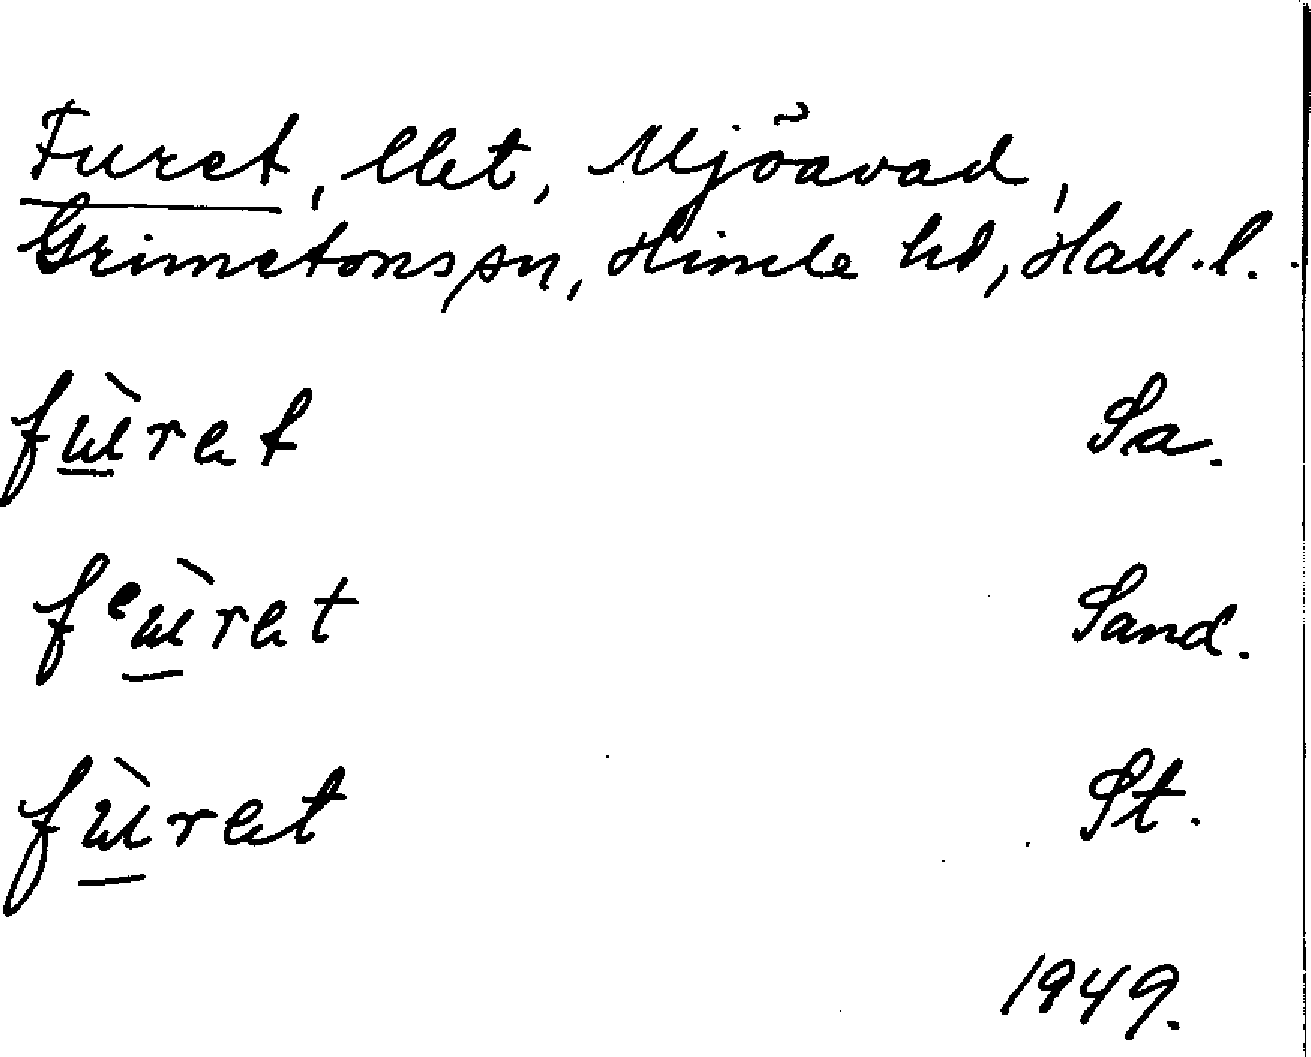 Furet, llet, Mjöavad,
Grimetons sn, Himle hd, Hall. l.
fùrat Sa.
fᵉùrat Sand.
fùrat St.
1949.